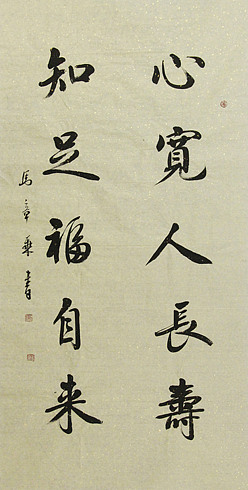 心寬人長壽
知足福自来
馬章乘書